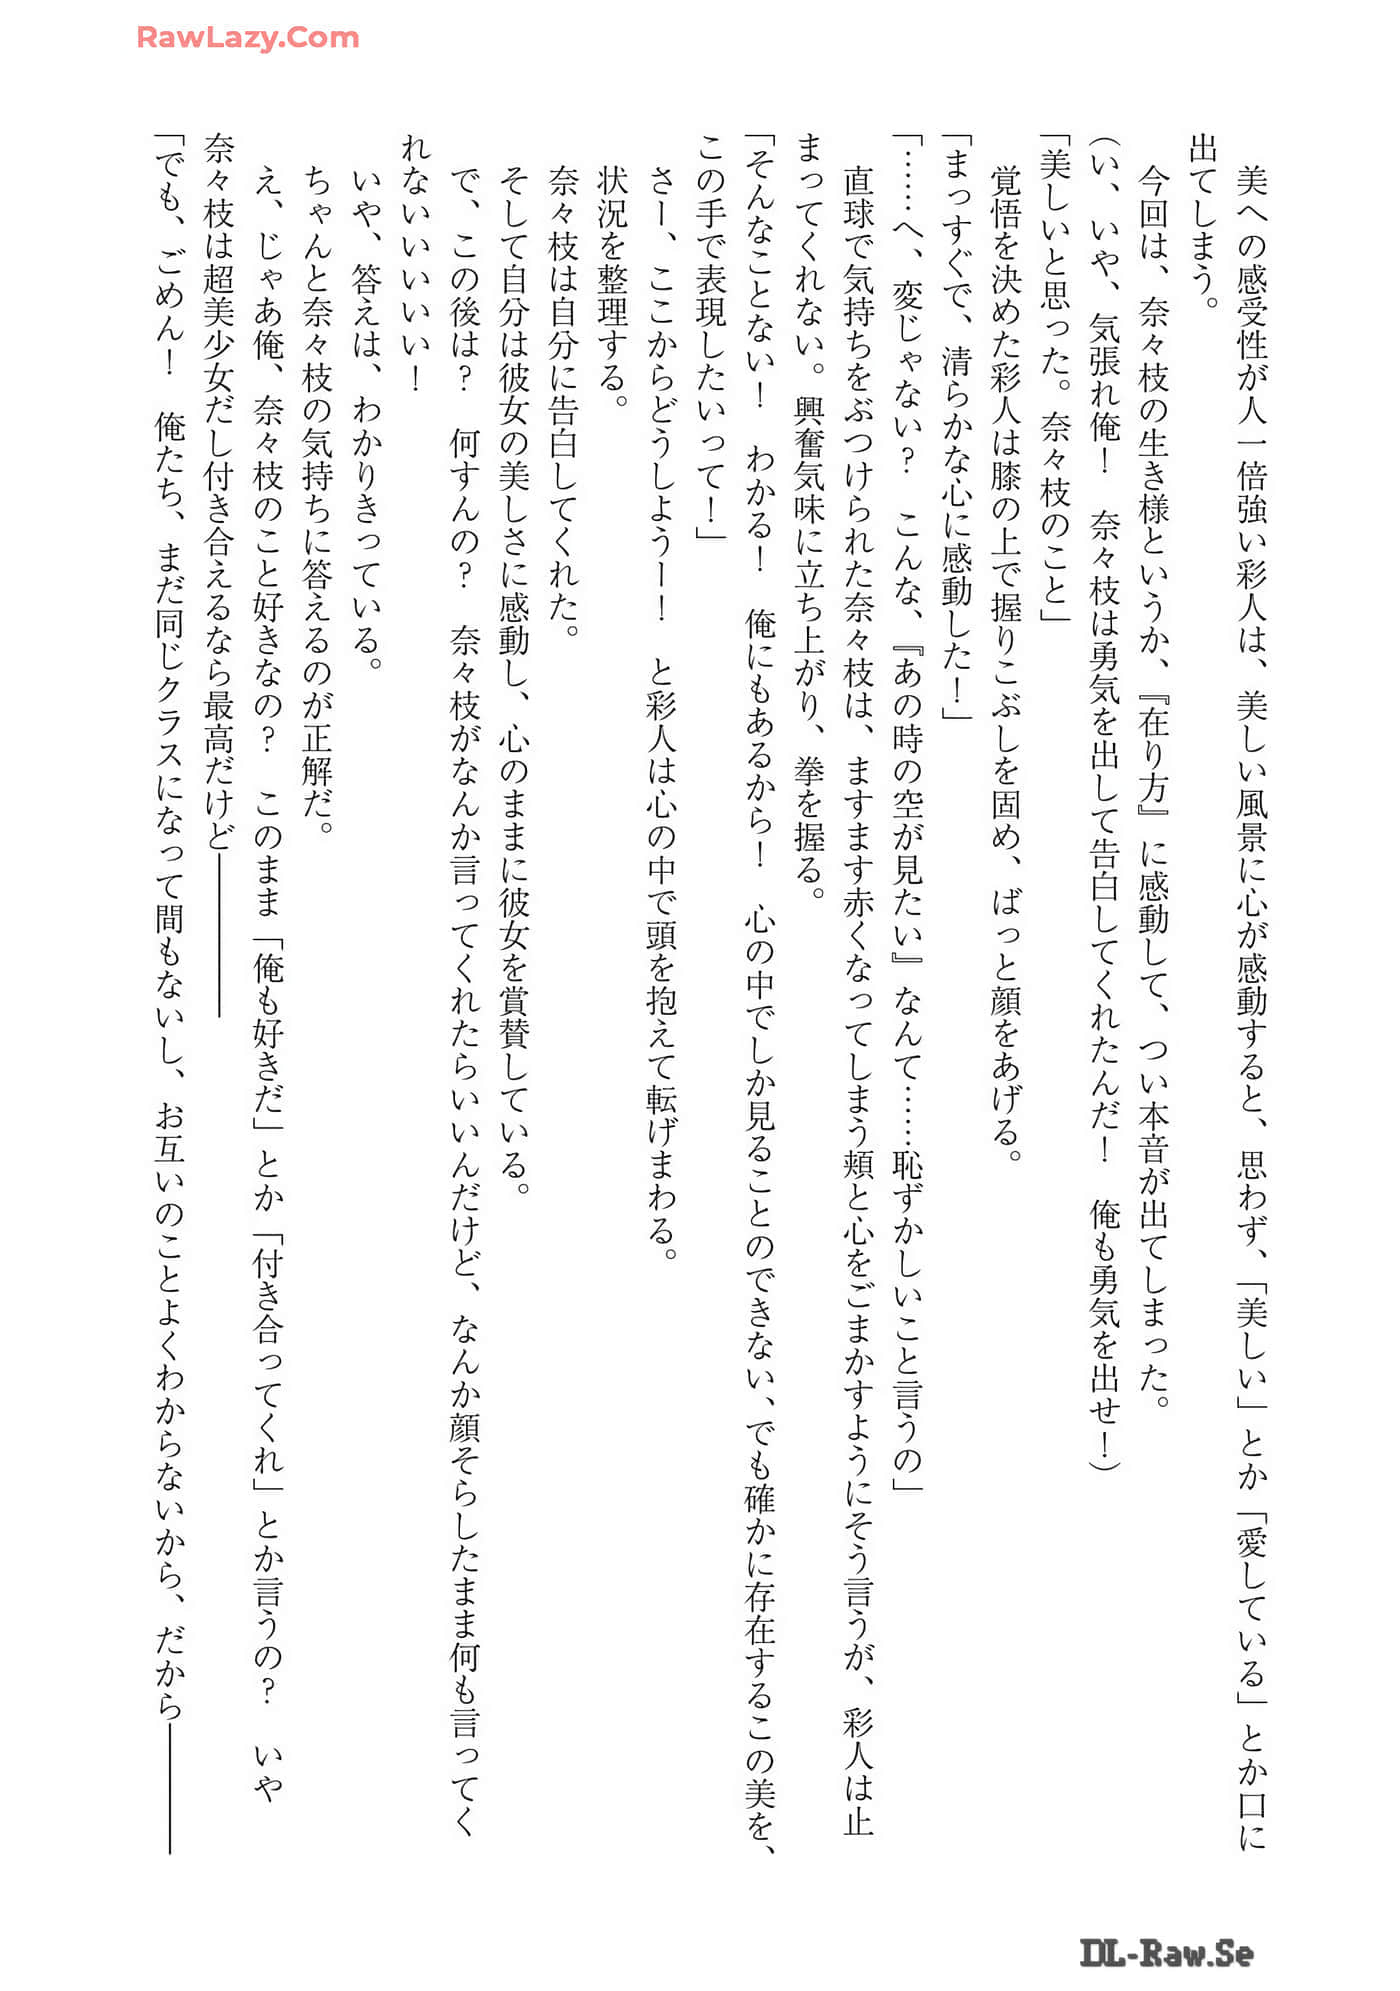 RawLazy.Com
　美への感受性が人一倍強い彩人は、美しい風景に心が感動すると、思わず、「美しい」とか「愛している」とか口に
出てしまう。
　今回は、奈々枝の生き様というか、『在り方』に感動して、つい本音が出てしまった。
（い、いや、気張れ俺！　奈々枝は勇気を出して告白してくれたんだ！　俺も勇気を出せ！）
「美しいと思った。奈々枝のこと」
　覚悟を決めた彩人は膝の上で握りこぶしを固め、ばっと顔をあげる。
「まっすぐで、清らかな心に感動した！」
「……へ、変じゃない？　こんな、『あの時の空が見たい』なんて……恥ずかしいこと言うの」
　直球で気持ちをぶつけられた奈々枝は、ますます赤くなってしまう頬と心をごまかすようにそう言うが、彩人は止
まってくれない。興奮気味に立ち上がり、拳を握る。
「そんなことない！　わかる！　俺にもあるから！　心の中でしか見ることのできない、でも確かに存在するこの美を、
この手で表現したいって！」
　さー、ここからどうしようー！　と彩人は心の中で頭を抱えて転げまわる。
状況を整理する。
　奈々枝は自分に告白してくれた。
　そして自分は彼女の美しさに感動し、心のままに彼女を賞賛している。
　で、この後は？　何すんの？　奈々枝がなんか言ってくれたらいいんだけど、なんか顔そらしたまま何も言ってく
れないいいいい！
　いや、答えは、わかりきっている。
　ちゃんと奈々枝の気持ちに答えるのが正解だ。
　え、じゃあ俺、奈々枝のこと好きなの？　このまま「俺も好きだ」とか「付き合ってくれ」とか言うの？　いや
奈々枝は超美少女だし付き合えるなら最高だけど――――
「でも、ごめん！　俺たち、まだ同じクラスになって間もないし、お互いのことよくわからないから、だから――――
DL-Raw.Se